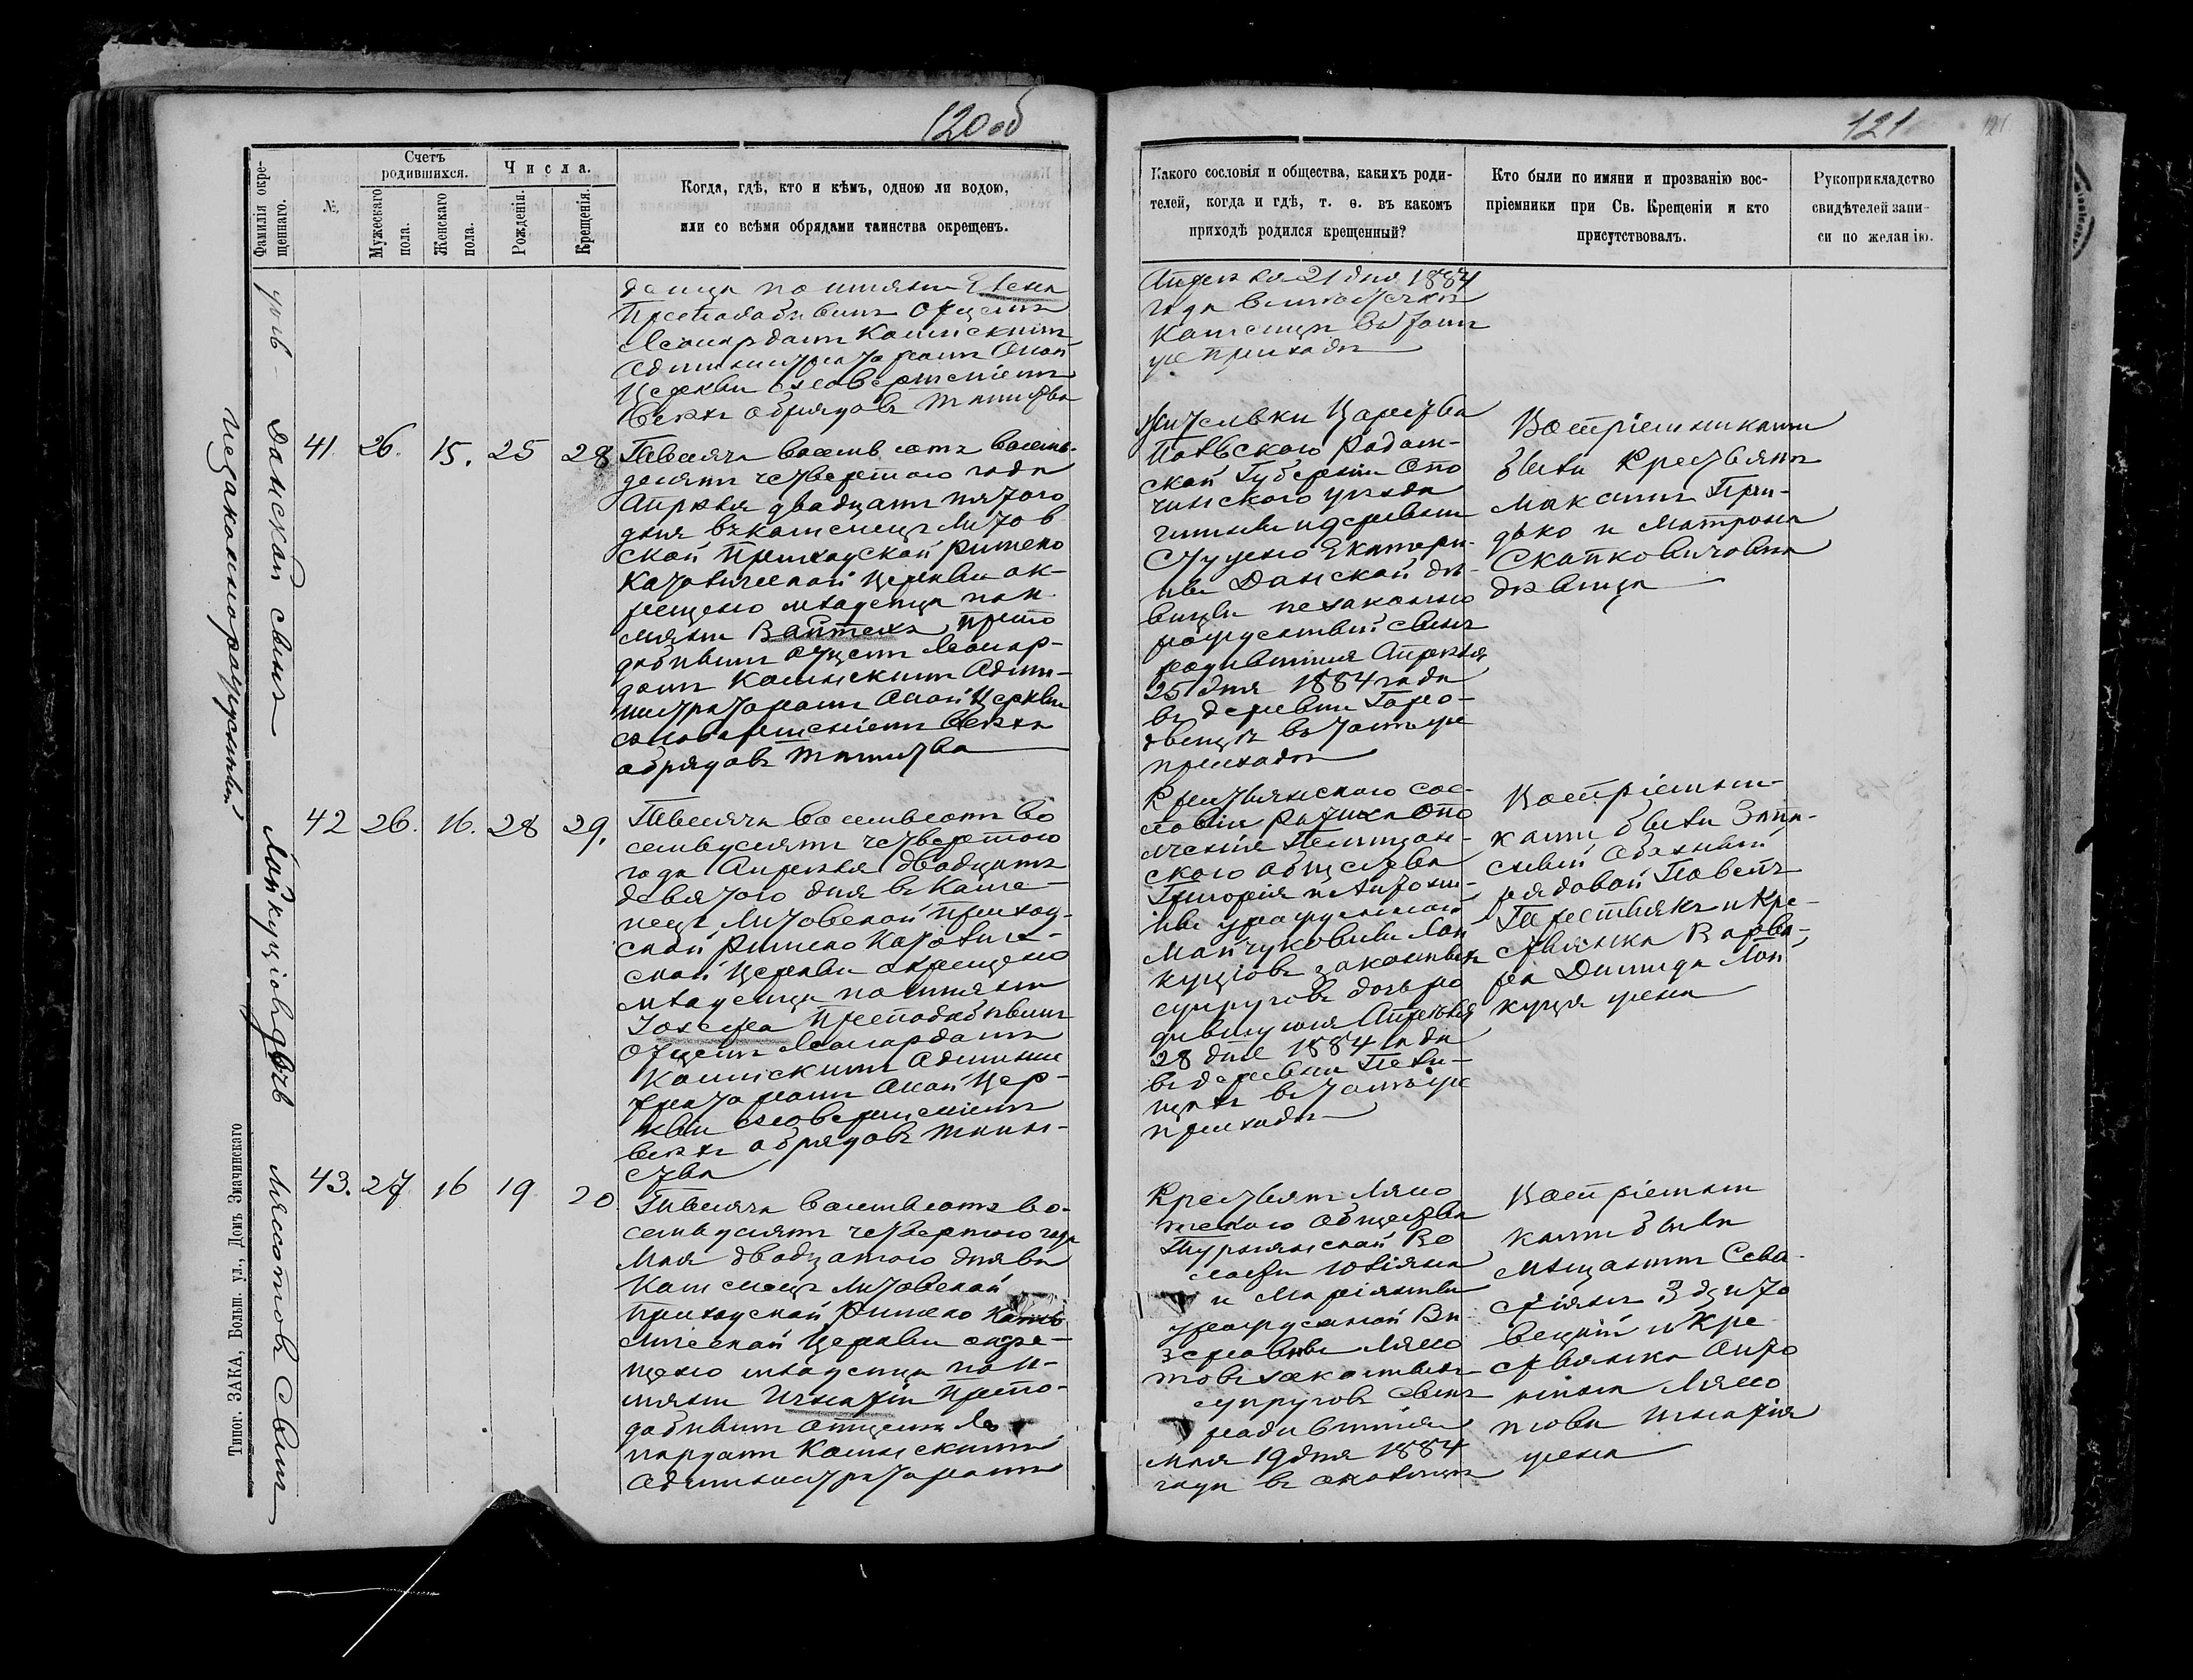 120 об
Фамилія окре-
щеннаго.
№
Счетъ
родившихся.
Мужескаго
пола.
Женскаго
пола.
Числа.
Рожденія.
Крещенія.
Когда, гдѣ, кто и кѣмъ, одною ли водою,
или со всѣми обрядами таинства окрещенъ.
денца по имяни Елена
Преподобнымъ Отцемъ
Леонардомъ Каминскимъ
Администраторомъ оной
Церкви съ совершеніемъ
всѣхъ обрядовъ таинства
Данской сынъ
незаконнорожденный
41 26. 15. 25 28
Тысяча восемь сотъ восемь-
десятъ четвертого года
Апрѣля двадцать пятого
дня въ Каменецъ Литов
ской Приходской Римско
Католической Церкви ок-
рещено младенца по и-
мяни Войтехъ препо
добнымъ отцемъ Леонар-
домъ Каминскимъ Адми-
нистраторомъ оной Церкви
съ совершеніемъ всѣхъ
обрядовъ таинства
Лойкуціовъ дочь
42 26. 16. 28 29.
Тысяча восемьсотъ во
семьдесятъ четвертого
года Апрѣля двадцать
девятого дня въ Каме-
нецъ Литовской Приход-
ской Римско Католиче-
ской Церкви окрещено
младенца по имяни
Іозефа преподобнымъ
Отцемъ Леонардомъ
Каминскимъ Админис
траторомъ оной Цер-
кви съ совершеніемъ
всѣхъ обрядовъ таин-
ства
Лясотовъ сынъ
43. 27 16 19 20
Тысяча восемьсотъ во-
семьдесятъ четвертого года
Мая двадцатого дня въ
Каменецъ Литовской
Приходской Римско Като
лической Церкви окре-
щено младенца по и-
мяни Игнатій препо-
добнымъ отцемъ Ле
онардомъ Каминскимъ
Администраторомъ
Типог. ЗАКА, Больш. ул., Домъ Значинскаго
121
121
Какого сословія и общества, какихъ роди-
телей, когда и гдѣ, т. ѳ. въ какомъ
приходѣ родился крещенный?
Кто были по имяни и прозванію вос-
пріемники при Св. Крещеніи и кто
присутствовалъ.
Рукоприкладство
свидѣтелей запи-
си по желанію.
Апрѣля 21 дня 1884
года въ мѣстечкѣ
Каменцѣ въ томъ
же приходѣ
Жительки Царства
Польского Радом-
ской Губерніи Опо
чинского уѣзда
гмины и деревни
Студено Екатери-
ны Данской дѣ-
вицы незаконно
рожденный сынъ
родившійся Апрѣля
25 дня 1884 года
въ деревни Горо-
въ томъ же
приходѣ
Воспріемниками
были Крестьянъ
Максимъ При-
дько и Матрона
Скопковичовна
дѣвица
Крестьянского сос-
ловія
ского общества
Григорія и Антони-
ны урожденной
Майчуковны Лой
куціовъ законныхъ
супруговъ дочь ро
дившуюся Апрѣля
28 дня 1884 года
въ деревни Пели-
щахъ въ томъ же
приходѣ
Воспріемни-
ками были Запа-
сный
рядовой Павелъ
и Кре-
стьянка Варва-
ра Лой
куця жена
Крестьянъ Лясо
тского общества
Турнянской Во
лости Юліяна
и Маріянны
урожденной Ви
Лясо
товъ законныхъ
супруговъ сынъ
родившійся
Мая 19 дня 1884
года въ околицѣ
Воспріемни
ками были
мѣщанинъ Сева-
стіянъ Здзито
вецкій и Кре
стьянка Анто
нина Лясо
това Игнатія
жена